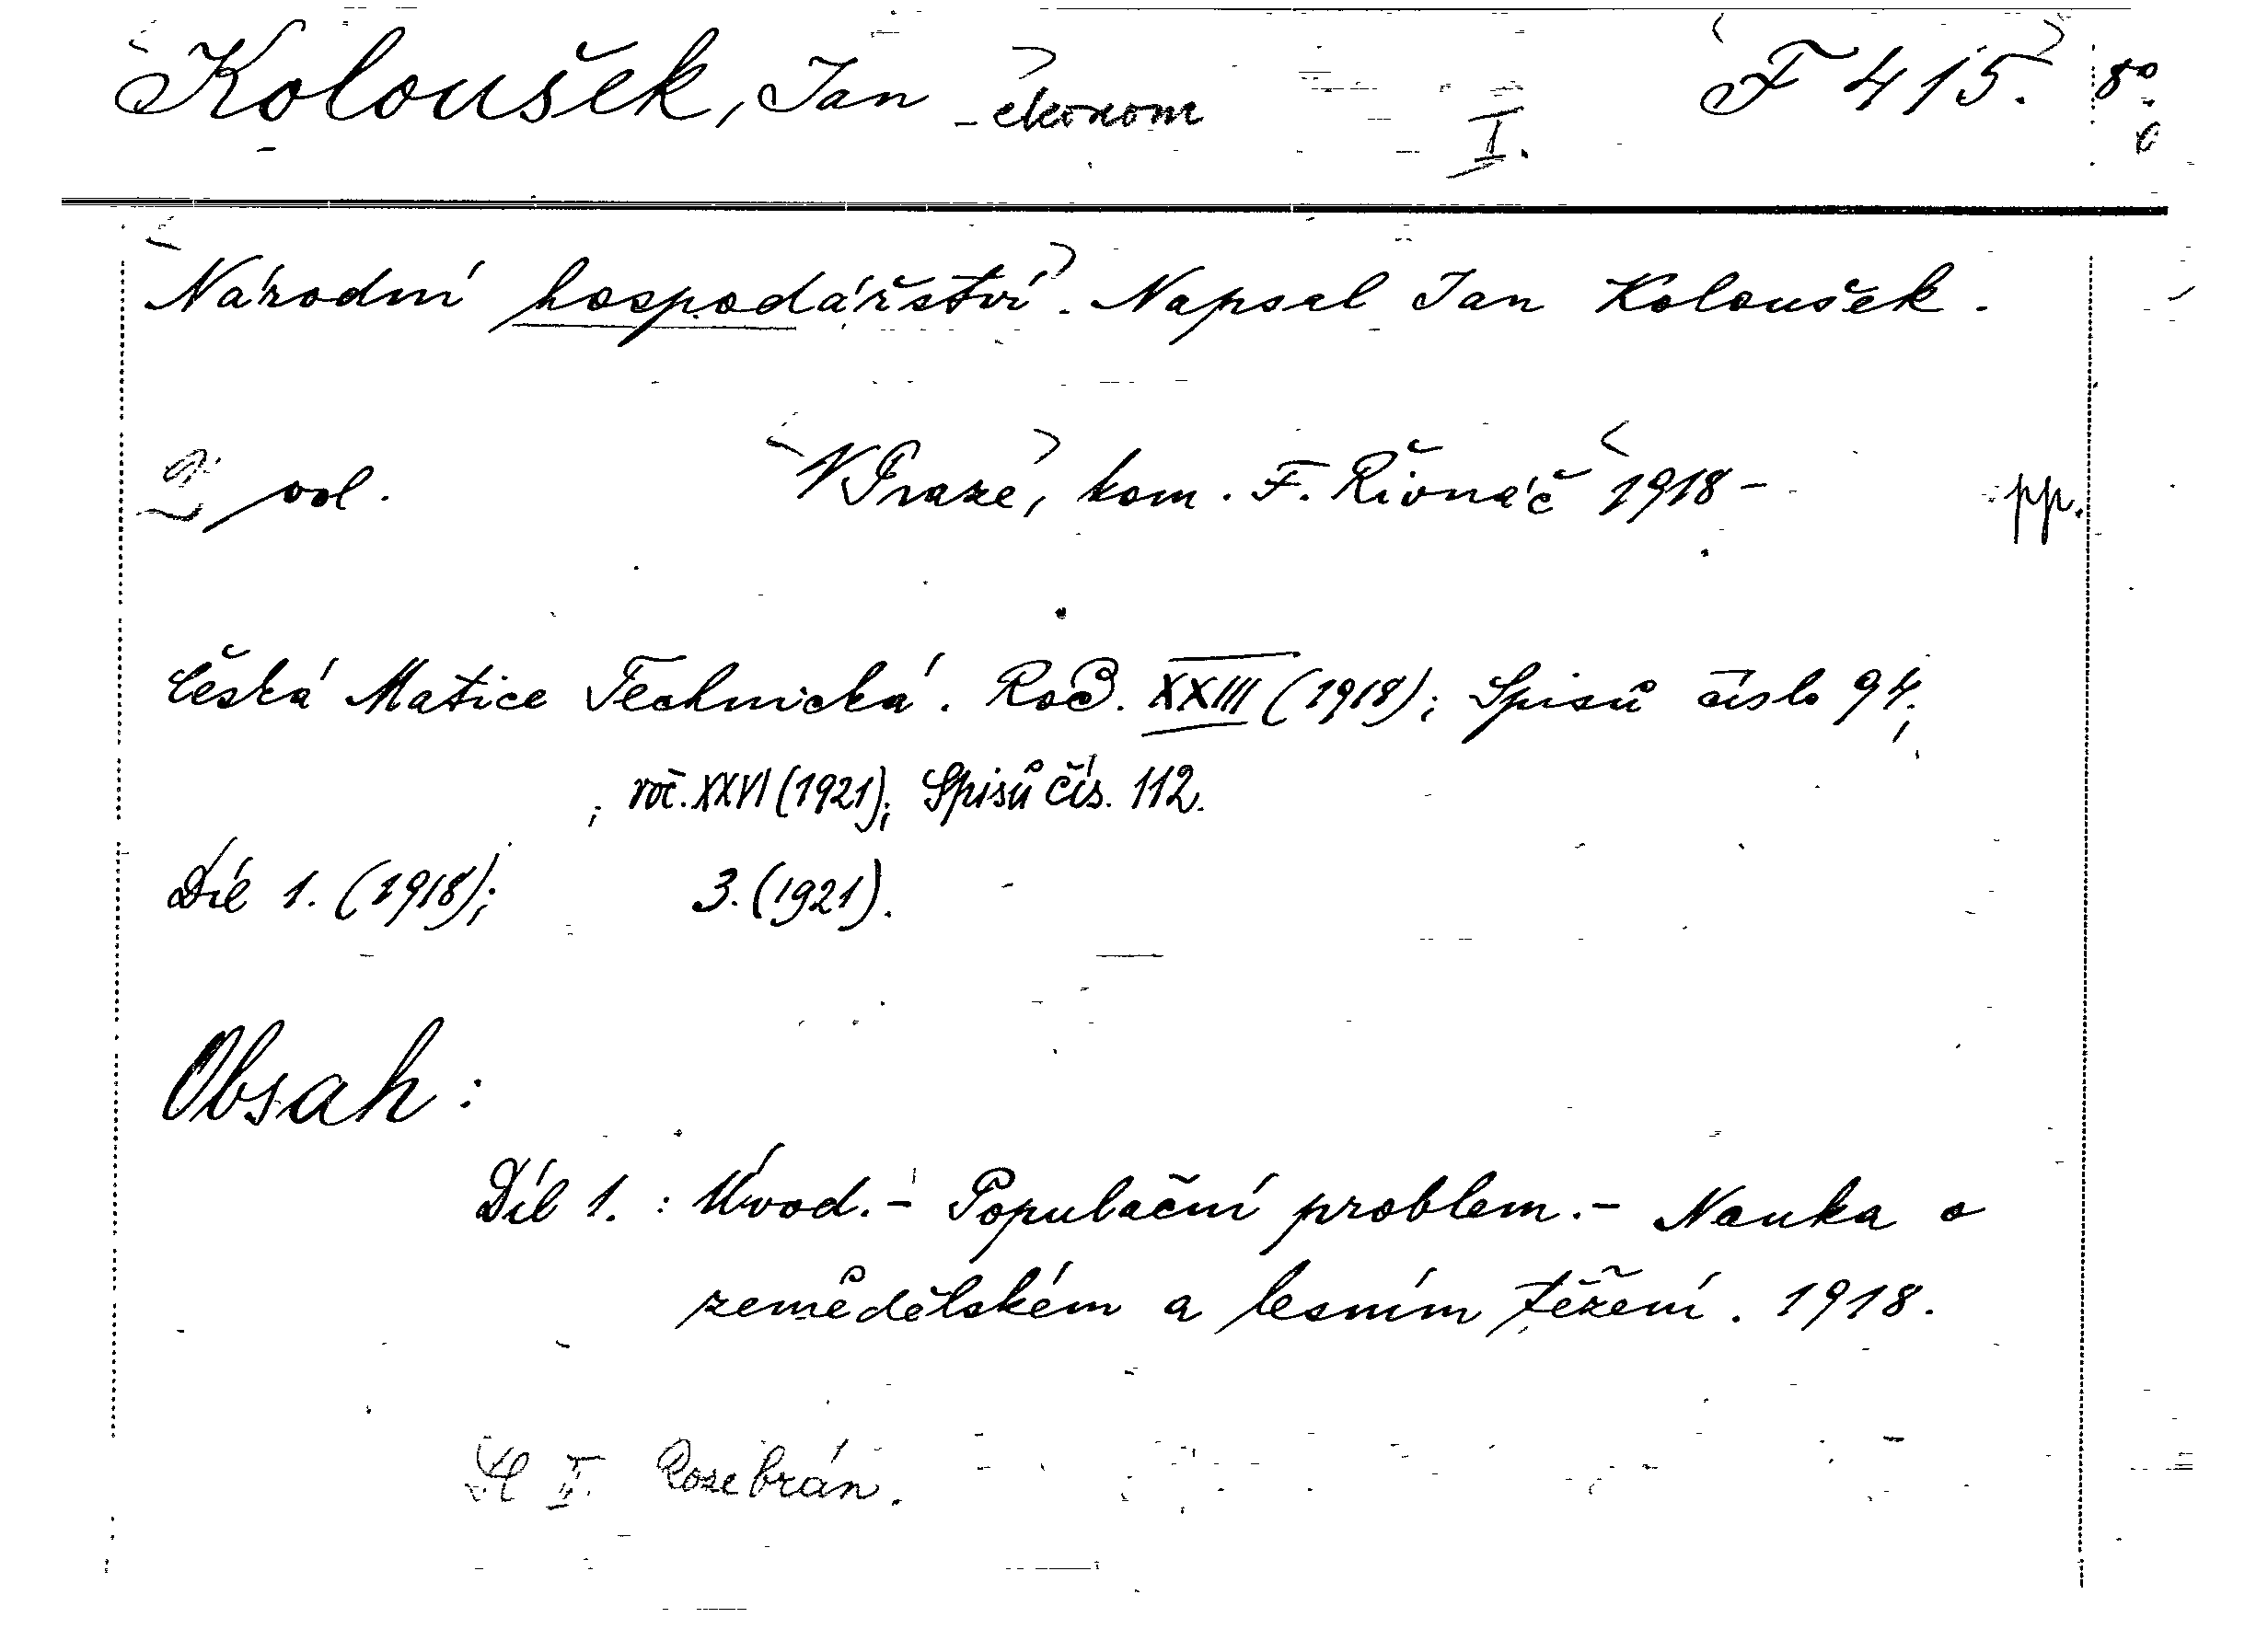 Koloušek, Jan - ekonom I. F 415. 8º
Národní hospodářství. Napsal Jan Koloušek.
vol. V Praze, kom. F. Řivnáč 1918- pp.
Česká Matice Technická. Roč. XXIII (1918); Spisů číslo 94;
; roč. XXVI (1921); Spisů čís. 112.
Díl 1. (1918); 3. (1921).
Obsah:
Díl 1. : Úvod. - Populační problem. - Nauka o
zemědělském a lesním těžení. 1918.
II. Rozebrán.